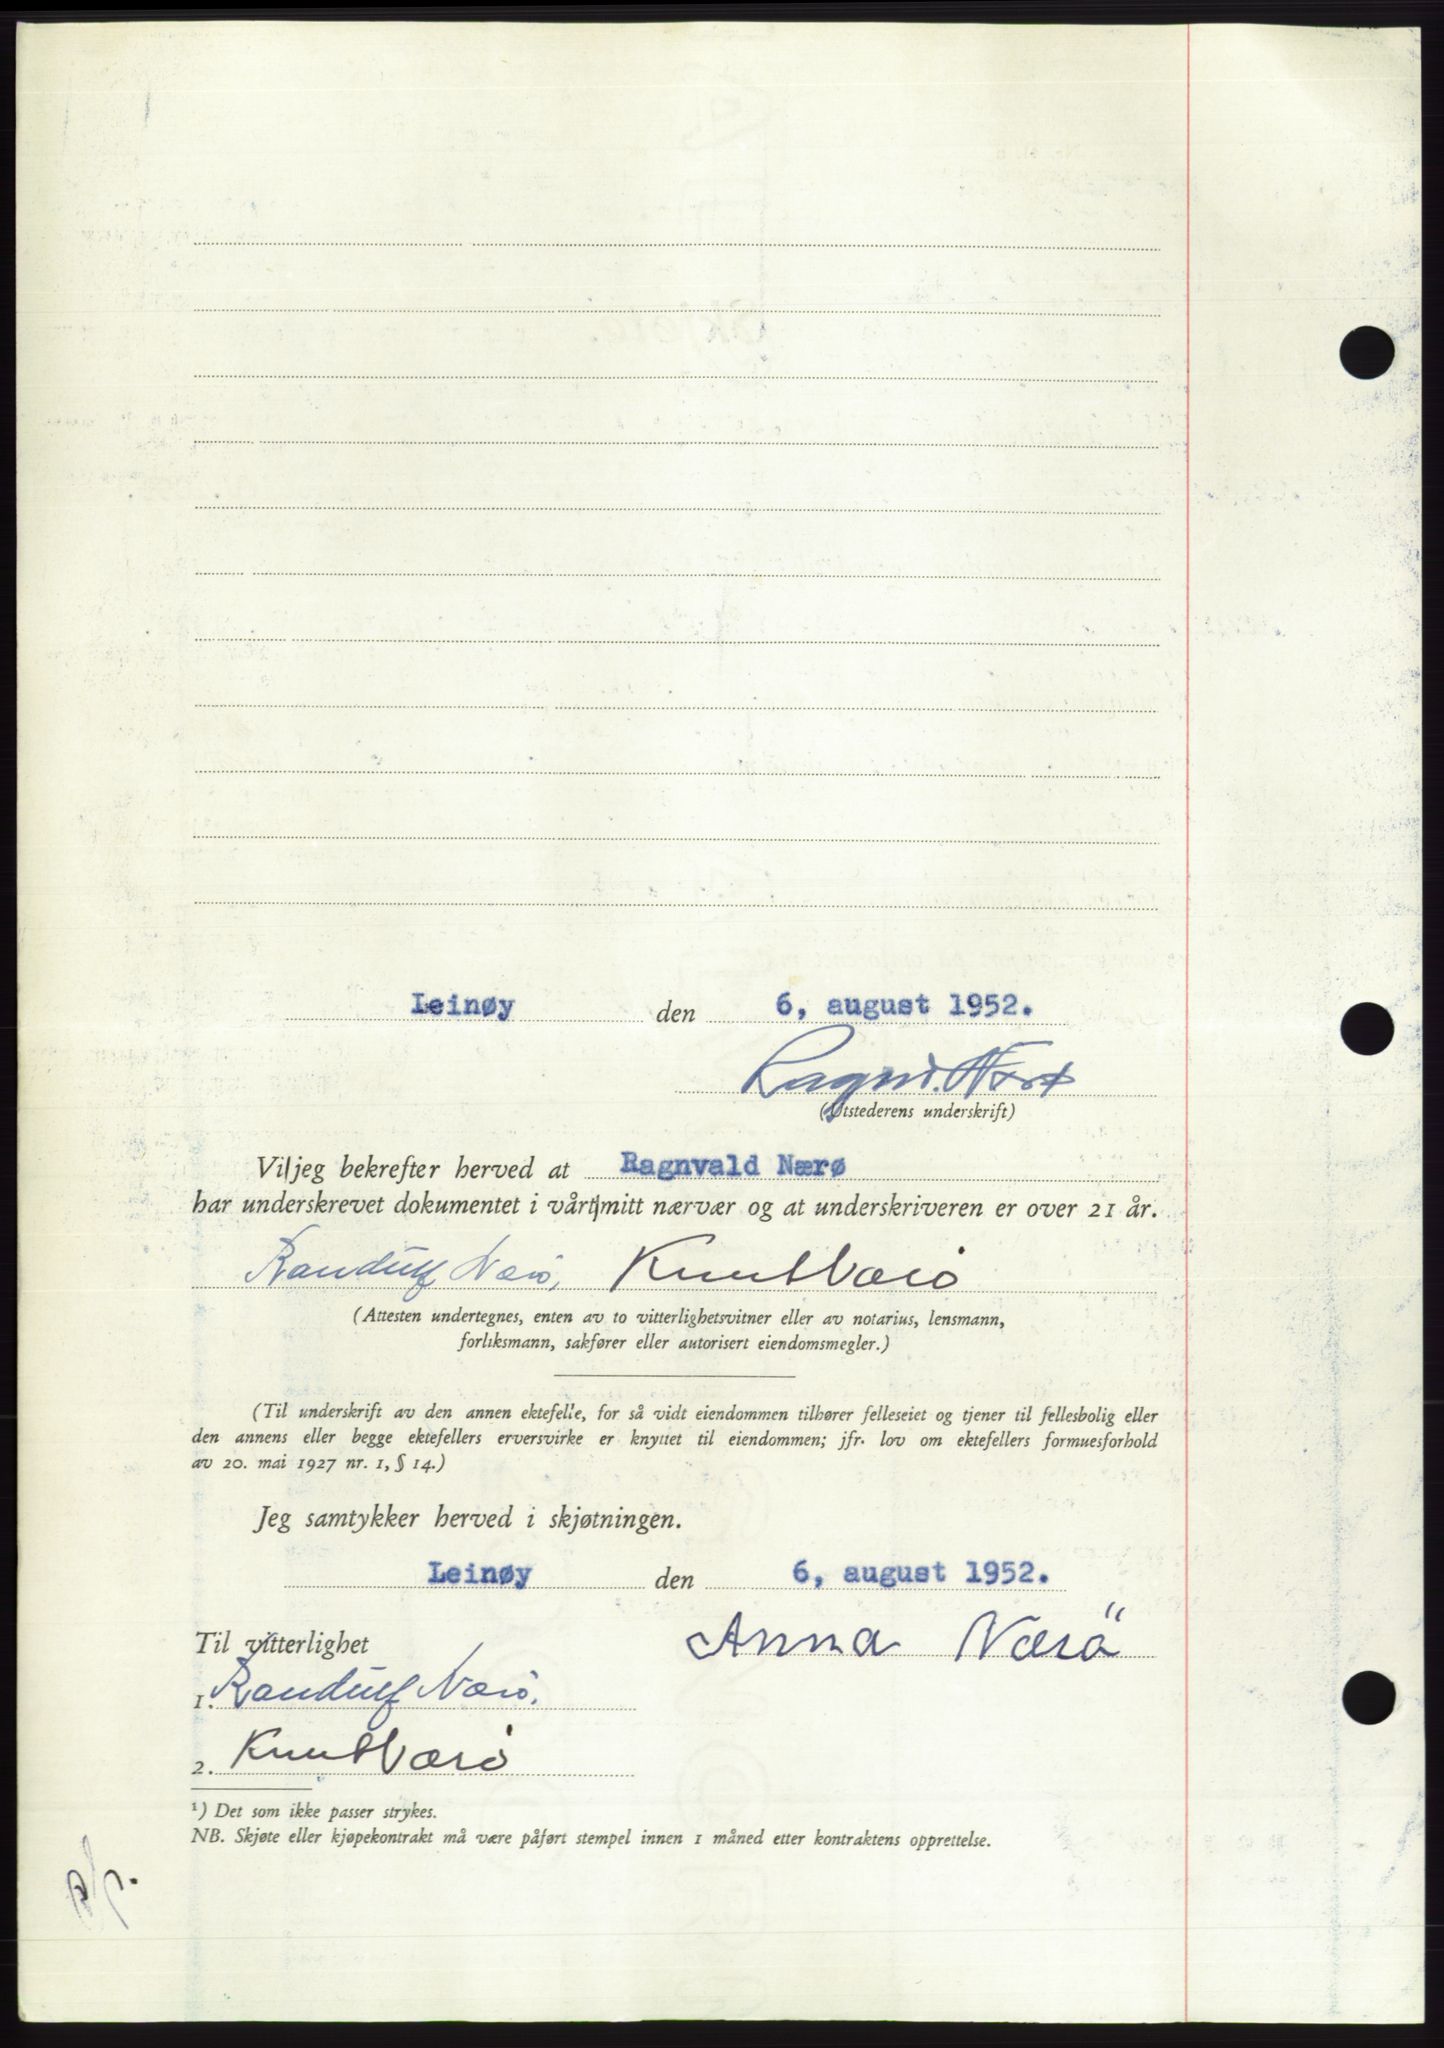 Leinøy den 6, august 1952.
Ragnv. Nærø
(Utstederens underskrift)
Vi/jeg bekrefter herved at Ragnvald Nærø
har underskrevet dokumentet i vårt/mitt nærvær og at underskriveren er over 21 år.
Randulf Nærö, Knut Nærö
(Attesten undertegnes, enten av to vitterlighetsvitner eller av notarius, lensmann,
forliksmann, sakfører eller autorisert eiendomsmegler.)
(Til underskrift av den annen ektefelle, for så vidt eiendommen tilhører felleseiet og tjener til fellesbolig eller
den annens eller begge ektefellers erversvirke er knyttet til eiendommen; jfr. lov om ektefellers formuesforhold
av 20. mai 1927 nr. 1, § 14.)
Jeg samtykker herved i skjøtningen.
Leinøy den 6, august 1952.
Til vitterlighet Anna Nærö
1. Randulf Nærö.
2. Knut Nærö
¹) Det som ikke passer strykes.
NB. Skjøte eller kjøpekontrakt må være påført stempel innen 1 måned etter kontraktens opprettelse.